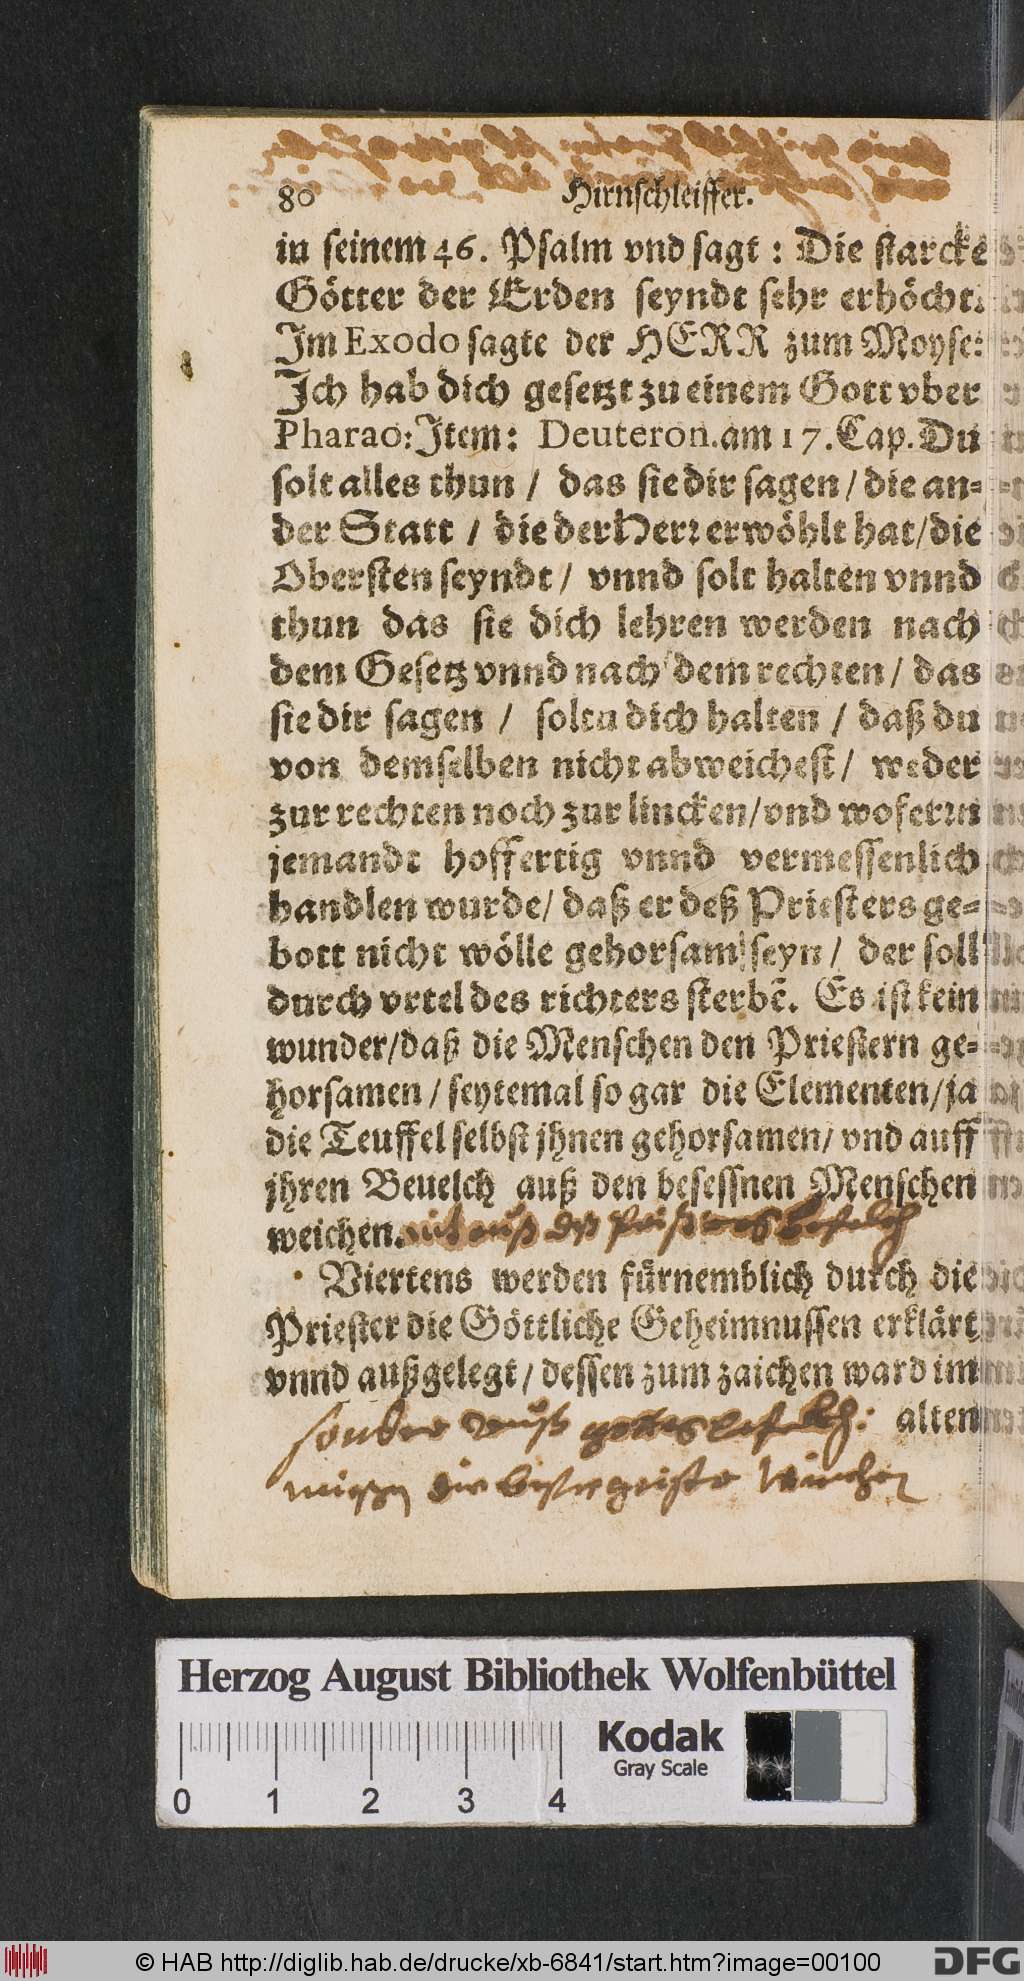 80 Hirnschleiffer.
in seinem 46. Psalm vnd sagt: Die starcke
Götter der Erden seyndt sehr erhöcht.
Im Exodo sagte der HERR zum Moyse:
Ich hab dich gesetzt zu einem Gott vber
Pharao: Item: Deuteron. am 17. Cap. Du
solt alles thun / das sie dir sagen / die an-
der Statt / die der Herr erwöhlt hat / die
Obersten seyndt / vnnd solt halten vnnd
thun das sie dich lehren werden nach
dem Gesetz vnnd nach dem rechten / das
sie dir sagen / soltu dich halten / daß du
von demselben nicht abweichest / weder
zur rechten noch zur lincken / vnd wofern
jemandt hoffertig vnnd vermessenlich
handlen wurde / daß er deß Priesters ge-
bott nicht wölle gehorsam seyn / der soll
durch vrtel des richters sterbē. Es ist kein
wunder / daß die Menschen den Priestern ge-
horsamen / seytemal so gar die Elementen / ja
die Teuffel selbst jhnen gehorsamen / vnd auff
jhren Beuelch auß den besessnen Menschen
weichen. nit auß deß Priesters befelch
Viertens werden fürnemblich durch die
Priester die Göttliche Geheimnussen erklärt
vnnd außgelegt / dessen zum zaichen ward im
alten
sonder auß gottes befelch:
die geister weichen
Herzog August Bibliothek Wolfenbüttel
Kodak
Gray Scale
0 1 2 3 4
© HAB http://diglib.hab.de/drucke/xb-6841/start.htm?image=00100
DFG